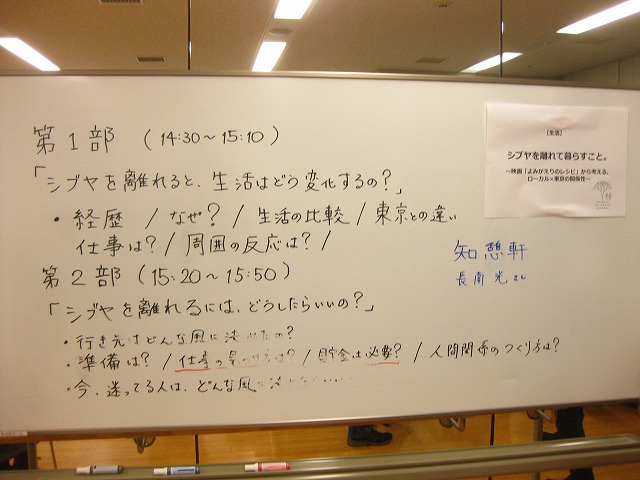 第1部 (14:30～15:10)
「シブヤを離れると、生活はどう変化するの？」
・経歴 / なぜ？ / 生活の比較 / 東京との違い
仕事は？ / 周囲の反応は？ /
第2部 (15:20～15:50)
「シブヤを離れるには、どうしたらいいの？」
・行き先はどんな風に決めたの？
・準備は？ / 仕事の見つけ方は？ / 貯金は必要？ / 人間関係のつくり方は？
・今、迷ってる人は、どんな風に
【生活】
シブヤを離れて暮らすこと。
～映画「よみがえりのレシピ」から考える、
ローカル×東京の関係性～
知憩軒
長南光さん